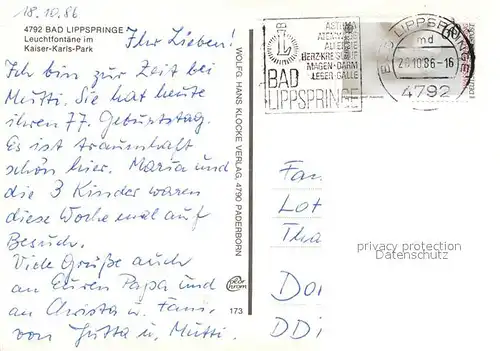 18.10.86
4792 BAD LIPPSPRINGE
Leuchtfontäne im
Kaiser-Karls-Park
Ihr Lieben!
Ich bin zur Zeit bei
Mutti. Sie hat heute
ihren 77. Geburtstag.
Es ist traumhaft
schön hier. Maria und
die 3 Kinder waren
diese Woche mal auf
Besuch.
Viele Grüße auch
an Euren Papa und
an Christa u. Fam.
von Jutta u. Mutti.
WOLFG. HANS KLOCKE VERLAG, 4790 PADERBORN
173
BAD
LIPPSPRINGE
ASTHMA
ALLERGIE
HERZ-KREISLAUF
MAGEN-DARM
LEBER-GALLE
BAD LIPPSPRINGE
md
20.10.86-16
4792
Fam
Lot
Tha
Do
DD
privacy protection
Datenschutz